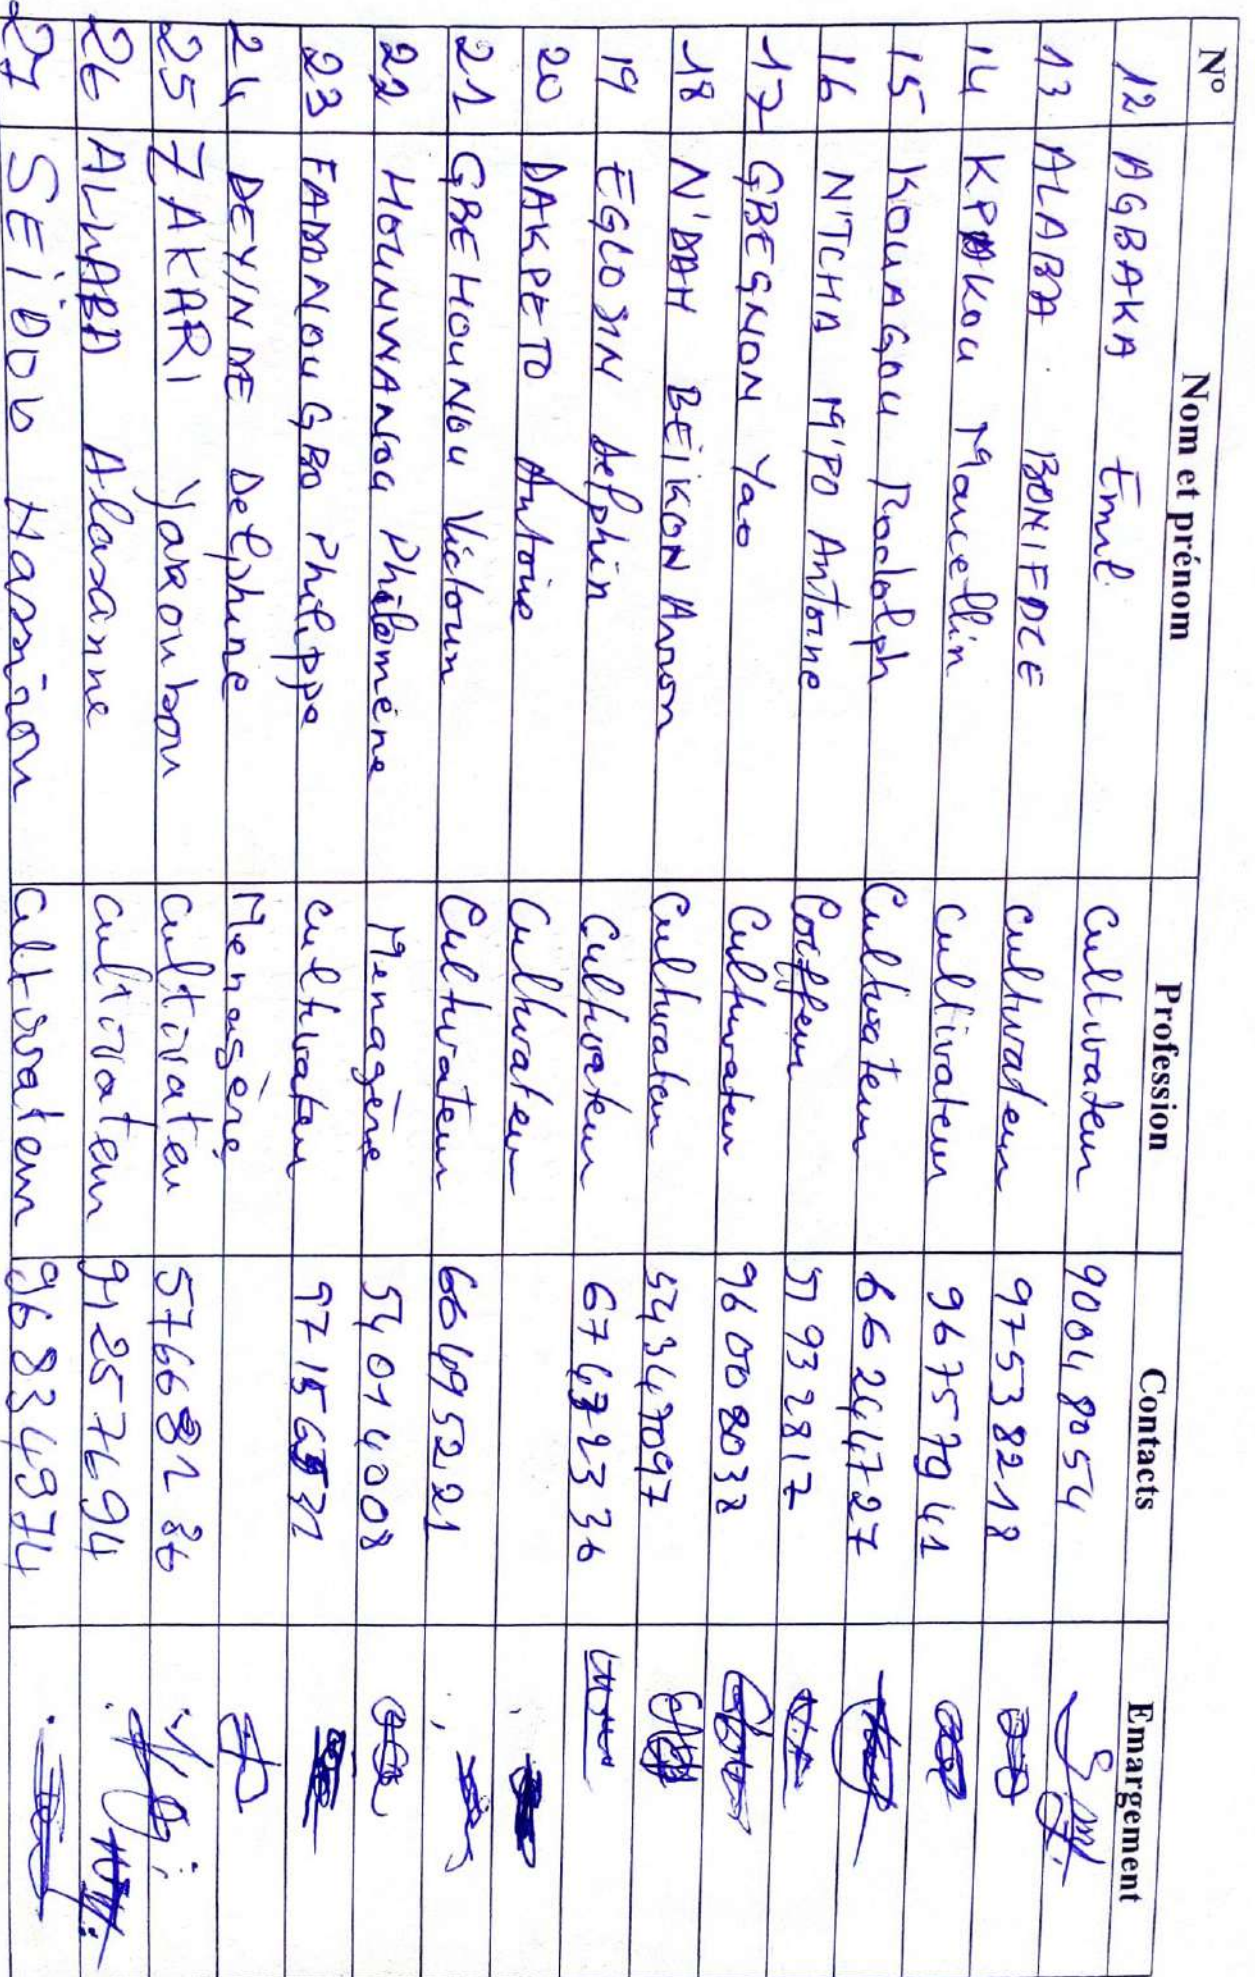 N° Nom et prénom Profession Contacts Emargement
12 AGBAKA Emil Cultivateur 90048054
13 ALABA BONIFACE Cultivateur 97538218
14 KPAKOU Marcellin Cultivateur 96757941
15 KOUAGOU Rodolph Cultivateur 66244727
16 N'TCHA M'PO Antoine Coiffeur 51932817
17 GBEGNON Yao Cultivateur 96008038
18 N'DAH BEIKON Aron Cultivateur 54347097
19 EGLOSIN Delphin Cultivateur
20 DAKPETO Antoine Cultivateur
21 GBEHOUNOU Victorin Cultivateur 66495221
22 HOUNWANOU Philomène Menagère 54014008
23 FADANOUGBO Philippe cultivateur
24 DEYINDE Delphine Menagère
25 ZAKARI Yakoubou Cultivateu 57668286
26 Alassane cultivateur 91257694
27 SEIDOU Hassion Cultivateur 96834974